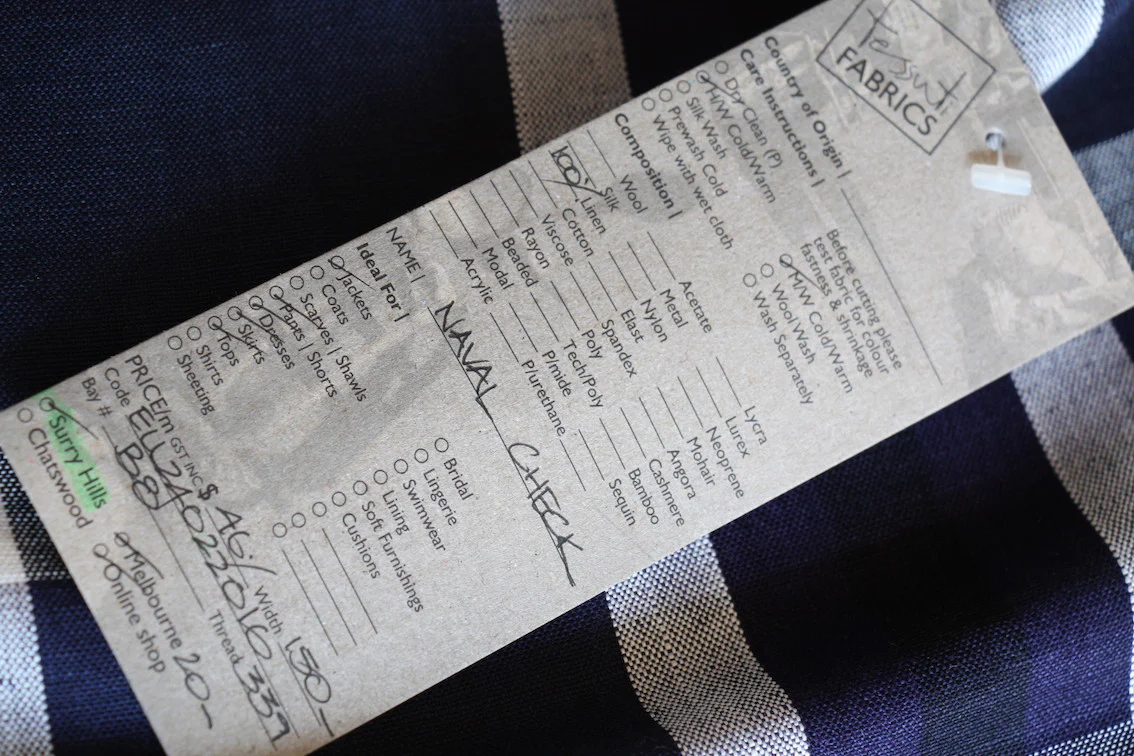 Tessuti
FABRICS
Country of Origin |
Care Instructions |
Dry Clean (P)
H/W Cold/Warm
Silk Wash
Prewash Cold
Wipe with wet cloth
Before cutting please
test fabric for colour
fastness & shrinkage
H/W Cold/Warm
Wool/Wash
Wash Separately
Composition |
Wool
Silk
100% Linen
Cotton
Viscose
Rayon
Beaded
Modal
Acrylic
Acetate
Metal
Nylon
Elast
Spandex
Poly
Tech/Poly
P/mide
P/urethane
Lycra
Lurex
Neoprene
Mohair
Angora
Cashmere
Bamboo
Sequin
NAME | NAVAL CHECK
Ideal For |
Jackets
Coats
Scarves | Shawls
Pants | Shorts
Dresses
Skirts
Tops
Shirts
Sheeting
Bridal
Lingerie
Swimwear
Lining
Soft Furnishings
Cushions
PRICE/m GST INC $ 46/ Width 150-
Code Thread 337
Bay # B8
Surry Hills
Chatswood
Melbourne 20-
Online shop